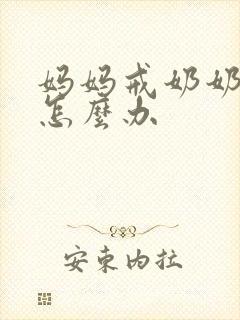 妈妈戒奶奶
怎麼办
安東内拉